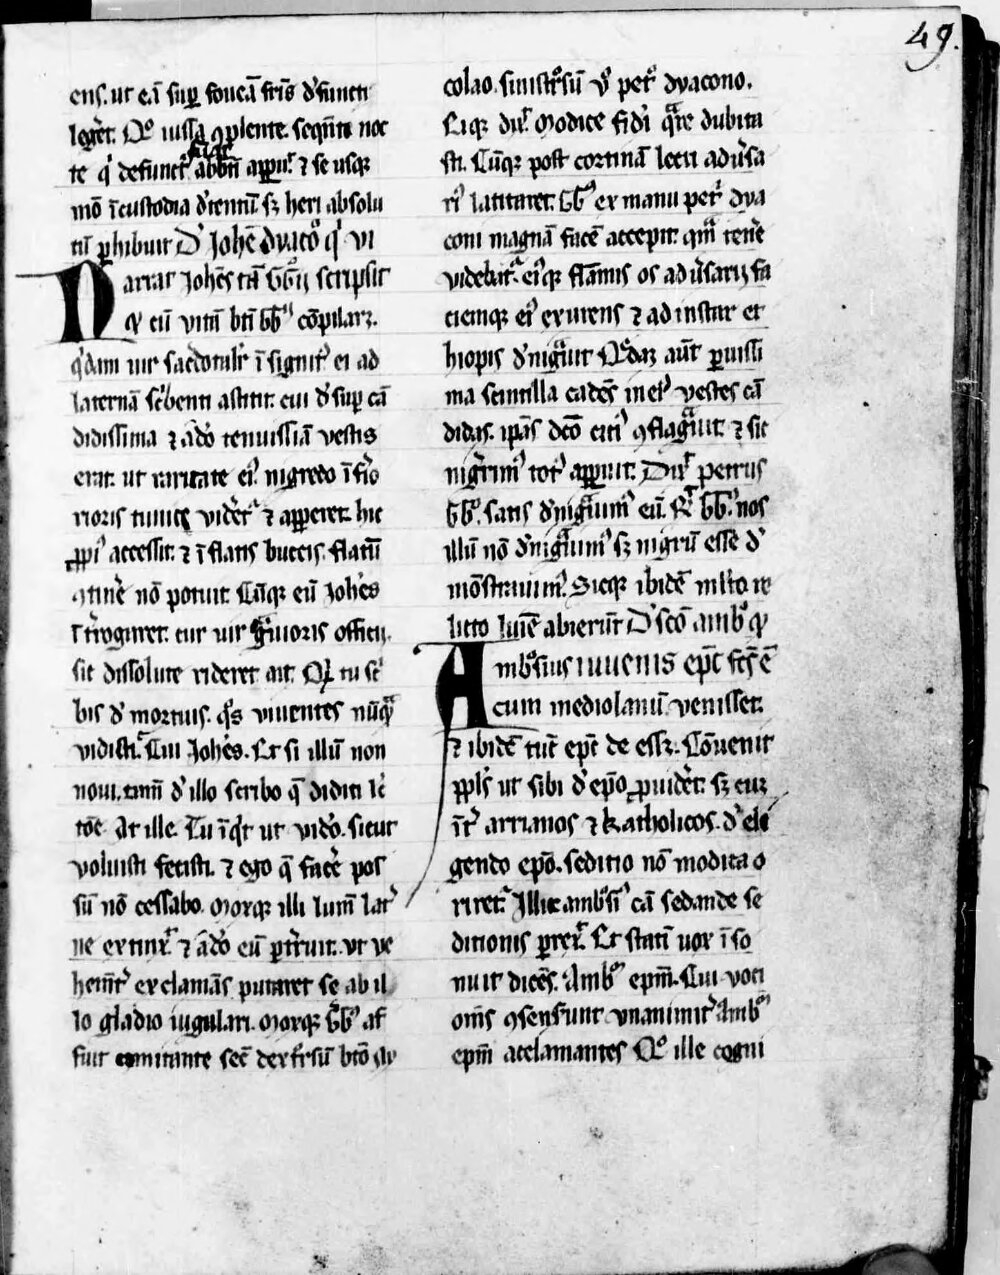 49.
ens. ut eā suꝑ foueā frīs dʼfuncti
legʼet. Qͦ iussa ꝯplente. sequēti noc
te qʼ defunctꝰ abbīti appuꝭt ⁊ se usqꝫ
mō ī custodia dʼtentū sꝫ heri absolu
tū ꝑhibuit Dʼ Johē dyacͦo qʼ vi
Narrat Johēs tā Gͨgͦii scripsit
qꝫ cū vitā btī Gͨgͦii cōpilarꝫ.
qʼdam uir sacʼdotalitʼ īsignitꝰ ei ad
laternā scʼbenti astitit. cui dʼsuꝑ cā
didissima ⁊ adʼo tenuissīa vestis
erat. ut raritate eiꝰ nigredo īfʼio
rioris tunice vidʼetʼ ⁊ apperet. hic
ꝓpiꝰ accessit. ⁊ īflatis buccis. flatū
ꝯtinʼe nō potuit. Cūqꝫ eū Johēs
īterogaret. cur uir gᵃuioris officii.
sit dissolute rideret ait. Qꝛ tu scʼ
bis dʼ mortuis. qͦs viuentes nūqᵃ
vidisti. Cui Johēs. Et si illū non
noui. tamē dʼ illo scribo qᵉ didici le
tōe. At ille. Tu īqʼt ut vidʼo. sicut
voluisti fecisti. ⁊ ego qᵉ facʼe pos
sū nō cessabo. Moxqꝫ illi lumē latʼ
ne extinxʼ ⁊ adʼo eū ꝑtʼruit. ut ve
hemētʼ exclamās putaret se ab il
lo gladio iugulari. Moxqꝫ Gͨgꝰ af
fuit comitante secū dextrͦsū btō Ny
colao. sinistrͦsū vͦ petrͦ dyacono.
Eiqꝫ dixʼ Modice fidʼi qᵃre dubita
sti. Cūqꝫ post cortinā lecti adūʼsa
riꝰ latitaret. Gͨgꝰ ex manu petrʼ dya
coni magnā facē accepit. quā tenʼe
videbatʼ. eiꝰqꝫ flāmis os adūʼsarii fa
ciemqꝫ eiꝰ exurens ⁊ ad instar et
hiopis dʼnigᵃuit Qͦdaꝫ aūt ꝑuissi
ma scintilla cadēs in eiꝰ vestes cā
didas. ipās dcō citiꝰ ꝯflagᵃuit. ⁊ sic
nigʼrimꝰ totꝰ apparuit. Dixʼ petrus
Gͨgͦ. satis dʼnigᵃuimꝰ eū. Rʼ Gͨgꝰ nos
illū nō dʼnigᵃuimꝰ sꝫ nigrū esse dʼ
mōstrauimꝰ. Sicqꝫ ibidē mlto re
licto lumīe abierūt Dʼ scō ambrͦ qꝫ
Ambrͦsius iuuenis
cum mediolanū venisset.
⁊ ibidē tūc epc̄ de esset. Cōuenit
ꝓpls ut sibi dʼ epō ꝓuidʼet. sꝫ cuꝫ
ītʼ arrianos ⁊ katholicos. dʼ eli
gendo epō. seditio nō modica o
riretʼ. Illic ambrͦsiꝰ cā sedande se
ditionis ꝑrexʼ. Et statī vox īso
nuit dicēs. Ambrͦ epm̄. Cui voci
om̄s ꝯsensūnt vnanimitʼ Ambrͦ
epm̄ acclamantes Qͦ ille cogni